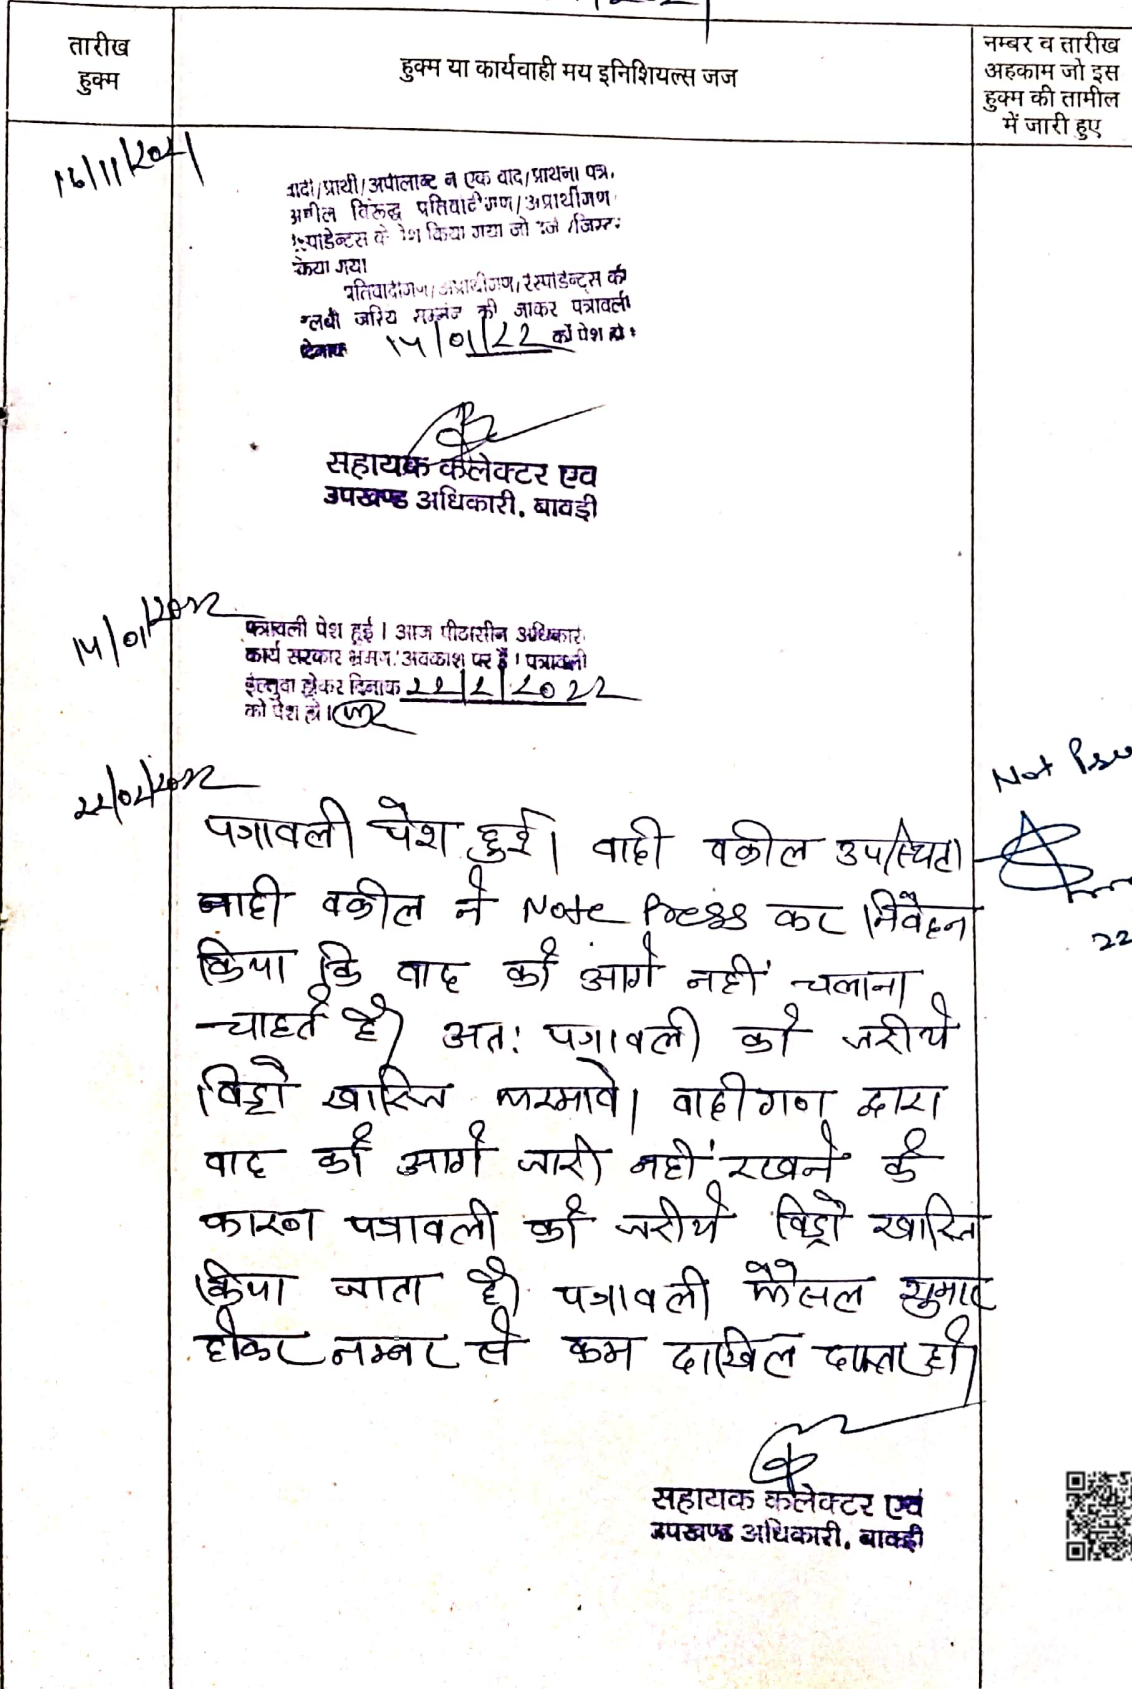 तारीख
हुक्म
हुक्म या कार्यवाही मय इनिशियल्स जज
नम्बर व तारीख
अहकाम जो इस
हुक्म की तामील
में जारी हुए
16/11/2021
वादी/प्रार्थी/अपीलान्ट ने एक वाद/प्राथना पत्र.
अपील विरूद्ध प्रतिवादीगण/अप्रार्थीगण
किया गया जो दर्ज रजिस्टर
किया गया
प्रतिवादीगण/अप्रार्थीगण/रेस्पोडेन्ट्स की
तलबी जरिये सम्मन की जाकर पत्रावली
दिनांक 14/01/22 को पेश हो।
सहायक कलेक्टर एव
उपखण्ड अधिकारी, बावड़ी
14/01/2022
पत्रावली पेश हुई। आज पीठासीन अधिकारी
कार्य सरकार भ्रमण/अवकाश पर है। पत्रावली
ईल्तुवा होकर दिनांक 22/2/2022
को पेश हो।
22/02/2022
Not Press
पत्रावली पेश हुई। वादी वकील उपस्थित।
वादी वकील ने Note Press कर निवेदन
किया कि वाद को आगे नहीं चलाना
चाहते है। अतः पत्रावली को जरीये
विड्रो खारिज फरमावे। वादीगण द्वारा
वाद को आगे जारी नहीं रखने के
कारण पत्रावली को जरीये विड्रो खारिज
किया जाता है। पत्रावली फैसल शुमार
होकर नम्बर से कम दाखिल दफ्तर हो।
22
सहायक कलेक्टर एवं
उपखण्ड अधिकारी, बावड़ी